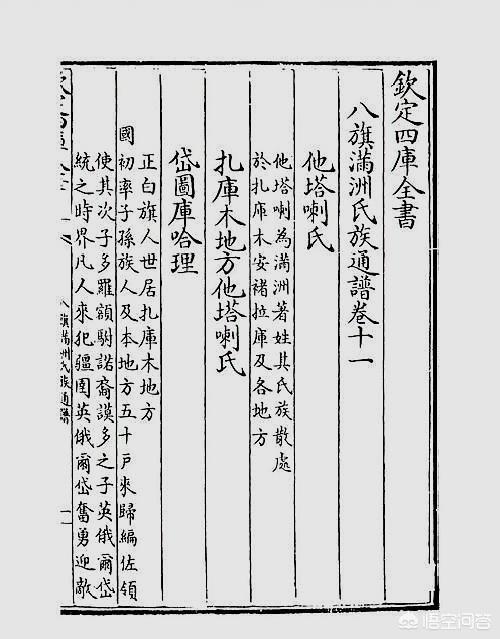 欽定四庫全書
八旗滿洲氏族通譜卷十一
他塔喇氏
他塔喇為滿洲著姓其氏族散處
於扎庫木安褚拉庫及各地方
扎庫木地方他塔喇氏
岱圖庫哈理
正白旗人世居扎庫木地方
國初率子孫族人及本地方五十戶來歸編佐領
使其次子多羅額駙諾裔謨多之子英俄爾岱
統之時界凡人來犯疆圉英俄爾岱奮勇迎敵
八旗滿洲氏族通譜
一
悟空问答